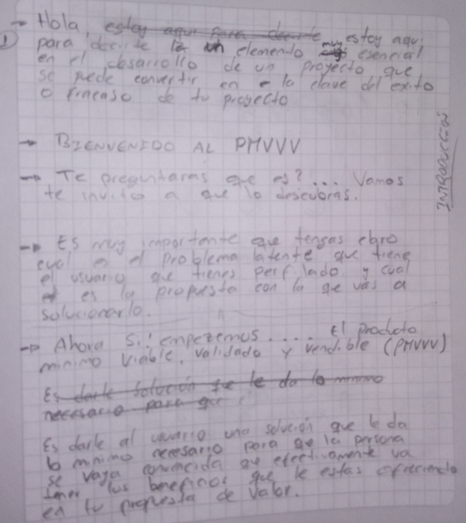 → Hola, estoy aqui para decirte estoy aqui
1 para decirte la un elemento muy esencial
en el desarrollo de un proyecto que
se puede convertir en la clave del exito
o fracaso de tu proyecto
→ BIENVENIDO AL PMVVV
→ Te preguntaras que es?... Vamos
te invito a que lo descubras.
INTRODUCCIÓN
→ ES muy importante que tengas claro
cual es el problema latente que tiene
el usuario que tienes perfilado y cual
es la propuesta con la que vas a
solucionarlo.
→ Ahora Si! empezemos..... El producto
minimo viable, validado y vendible (PMVVV)
Es darle solución que le da lo minimo
necesario para que
Es darle al usuario una solución que le da
lo minimo necesario para que la persona
se vaya convencida que efectivamente va
los beneficios que le estas ofreciendo
en tu propuesta de valor.